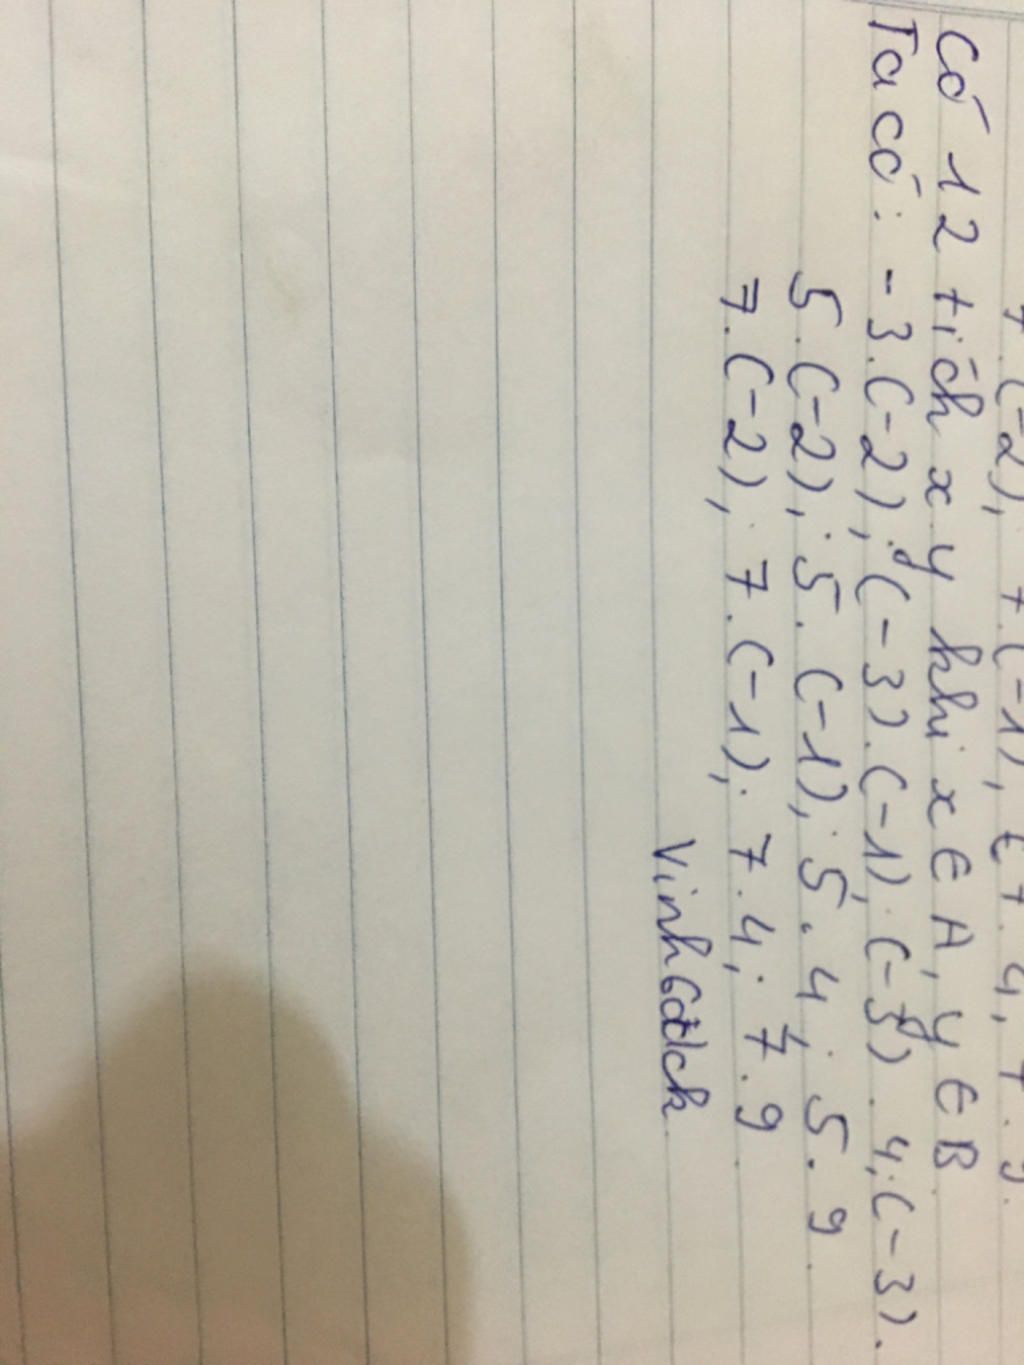 7.(-2); 7.(-1); 7.4; 7.9.
Có 12 tích x.y khi x ∈ A, y ∈ B.
Ta có: -3.(-2); (-3).(-1); (-3).4; (-3).
5.(-2); 5.(-1); 5.4; 5.9.
7.(-2); 7.(-1); 7.4; 7.9.